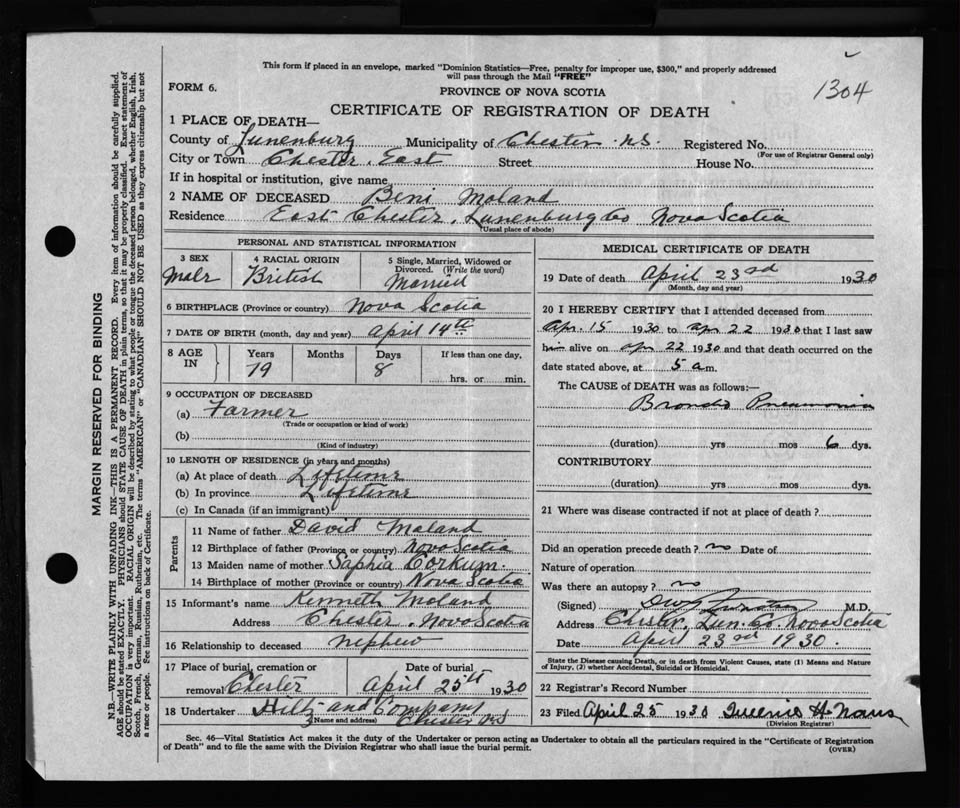 1304
This form if placed in an envelope, marked "Dominion Statistics—Free, penalty for improper use, $300," and properly addressed
will pass through the Mail "FREE"
FORM 6.
PROVINCE OF NOVA SCOTIA
CERTIFICATE OF REGISTRATION OF DEATH
1 PLACE OF DEATH—
County of Lunenburg Municipality of Chester N.S. Registered No.
(For use of Registrar General only)
City or Town Chester East Street House No.
If in hospital or institution, give name
2 NAME OF DECEASED Beni Moland
Residence East Chester, Lunenburg Co Nova Scotia
(Usual place of abode)
PERSONAL AND STATISTICAL INFORMATION
3 SEX
Male
4 RACIAL ORIGIN
British
5 Single, Married, Widowed or
Divorced. (Write the word)
Married
6 BIRTHPLACE (Province or country) Nova Scotia
7 DATE OF BIRTH (month, day and year) April 14th
8 AGE IN Years Months Days If less than one day,
79 8 hrs. or min.
9 OCCUPATION OF DECEASED
(a) Farmer
(Trade or occupation or kind of work)
(b)
(Kind of industry)
10 LENGTH OF RESIDENCE (in years and months)
(a) At place of death Lifetime
(b) In province Lifetime
(c) In Canada (if an immigrant)
Parents
11 Name of father David Moland
12 Birthplace of father (Province or country) Nova Scotia
13 Maiden name of mother Saphia Corkum.
14 Birthplace of mother (Province or country) Nova Scotia
15 Informant's name Kenneth Moland
Address Chester, Nova Scotia
16 Relationship to deceased nephew
17 Place of burial, cremation or Date of burial
removal Chester April 25th 1930
18 Undertaker Hilts and Company
(Name and address) Chester NS
MEDICAL CERTIFICATE OF DEATH
19 Date of death April 23rd 1930
(Month, day and year)
20 I HEREBY CERTIFY that I attended deceased from
Apr. 15 1930 to apr 22 1930 that I last saw
him alive on apr 22 1930 and that death occurred on the
date stated above, at 5 a.m.
The CAUSE OF DEATH was as follows:—
Broncho Pneumonia
(duration) yrs mos 6 dys.
CONTRIBUTORY
(duration) yrs mos dys.
21 Where was disease contracted if not at place of death?
Did an operation precede death? no Date of
Nature of operation
Was there an autopsy? no
(Signed) M.D.
Address Chester, Lun. Co. Nova Scotia
Date April 23rd 1930.
State the Disease causing Death, or in death from Violent Causes, state (1) Means and Nature
of Injury, (2) whether Accidental, Suicidal or Homicidal.
22 Registrar's Record Number
23 Filed April 25 1930
(Division Registrar)
Sec. 46—Vital Statistics Act makes it the duty of the Undertaker or person acting as Undertaker to obtain all the particulars required in the "Certificate of Registration
of Death" and to file the same with the Division Registrar who shall issue the burial permit.
(OVER)
MARGIN RESERVED FOR BINDING
N.B.—WRITE PLAINLY WITH UNFADING INK—THIS IS A PERMANENT RECORD. Every item of information should be carefully supplied.
AGE should be stated EXACTLY. PHYSICIANS should STATE CAUSE OF DEATH in plain terms, so that it may be properly classified. Exact statement of
OCCUPATION is very important. RACIAL ORIGIN will be described by stating to what people or tongue the deceased person belonged, whether English, Irish,
Scotch, French, German, Russian, Ruthenian, etc. The terms "AMERICAN" or "CANADIAN" SHOULD NOT BE USED as they express citizenship but not
a race or people. See instructions on back of Certificate.